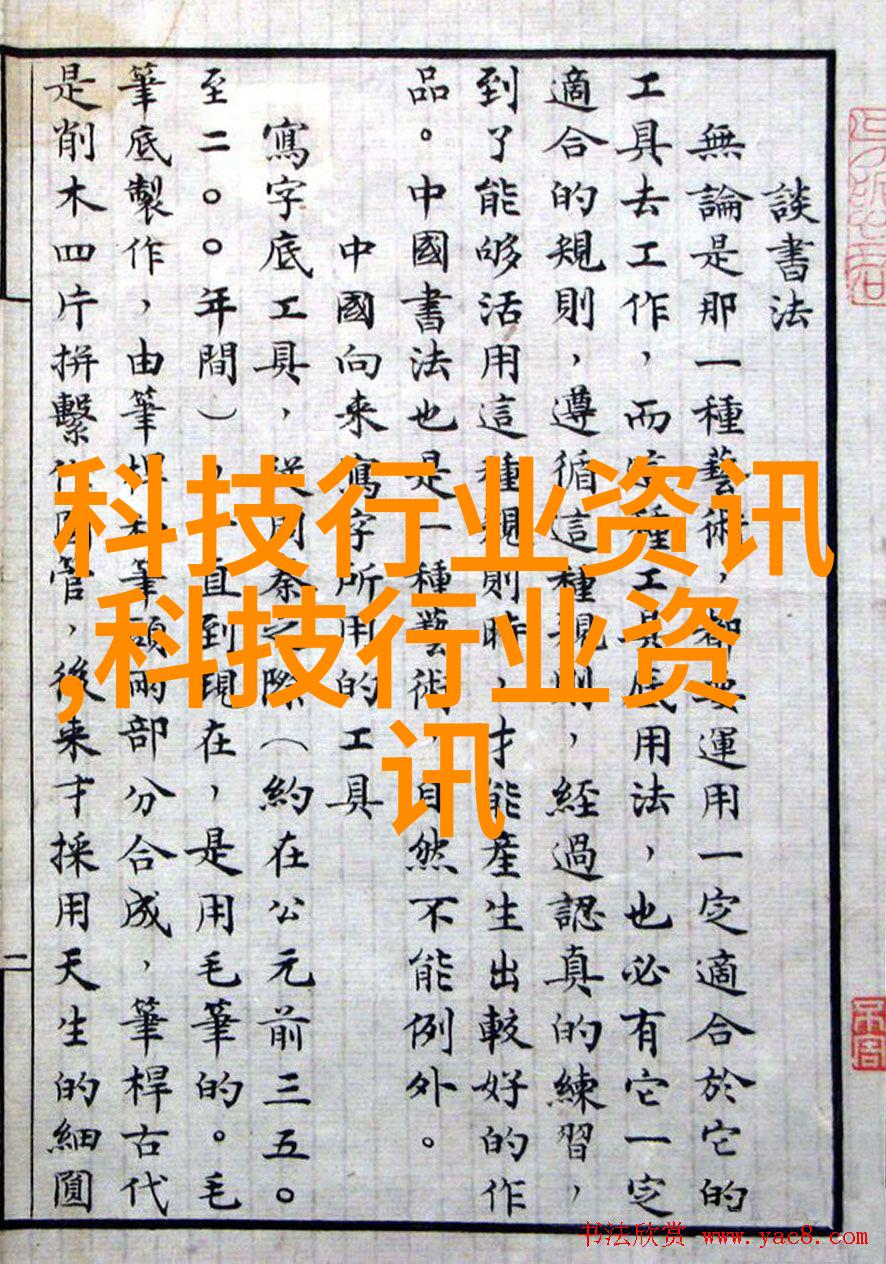 談書法
無論是那一種藝術，都要運用一定適合於它的
工具去工作，而種工具底用法，也必有它一定
適合的規則，遵循這種規則，經過認真的練習，
到了能够活用這種規則時，才能產生出較好的作
品。中國書法也是一種藝術，自然不能例外。
中國向来寫字所用的工具
寫字底工具，從周秦之際（約在公元前三五〇
至二〇〇年間），一直到現在，是用毛筆的。毛
筆底製作，由筆桿和筆頭兩部分合成，筆桿古代
是削木四片拼繫作圓管，後来才採用天生的細圓
二
科技行业资讯
,科技行业资
讯
书法欣赏 www.yac8.com